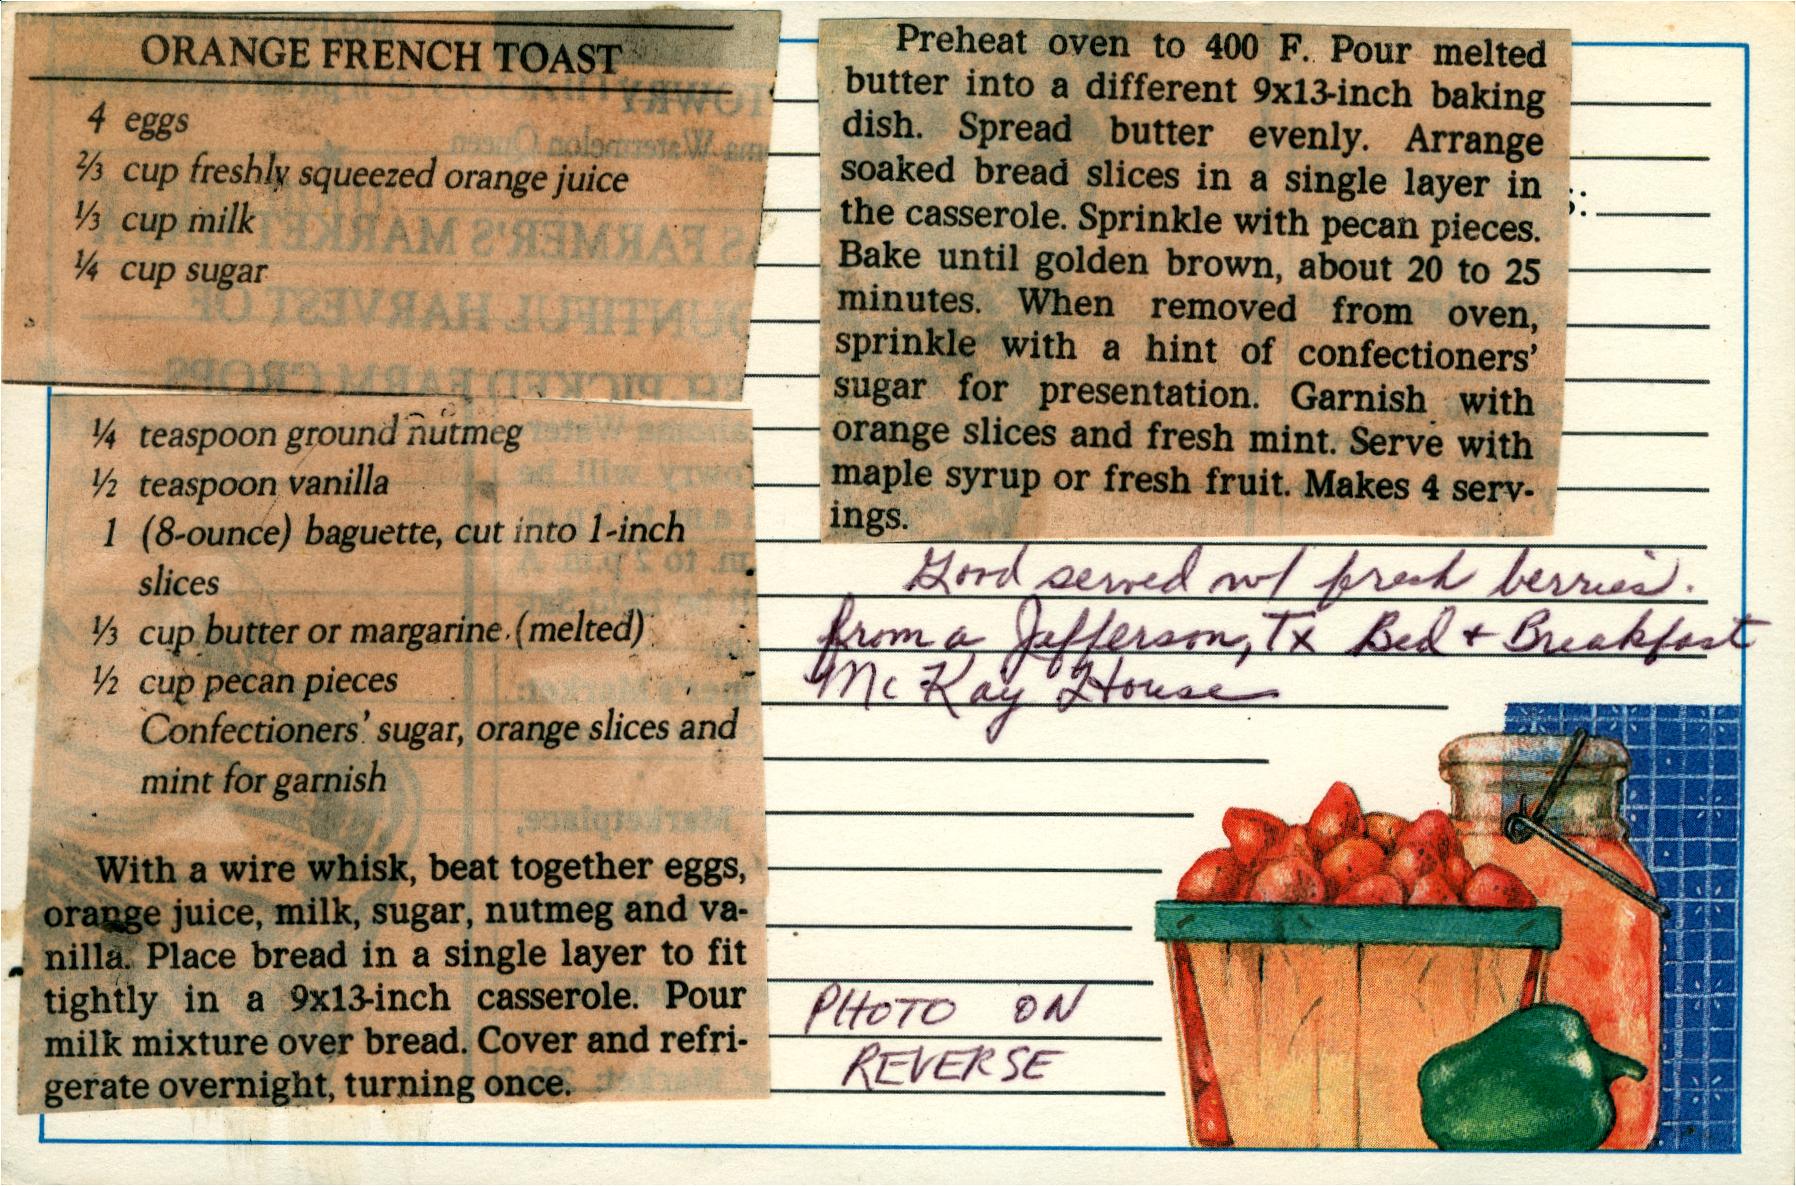 ORANGE FRENCH TOAST
4 eggs
⅔ cup freshly squeezed orange juice
⅓ cup milk
¼ cup sugar
¼ teaspoon ground nutmeg
½ teaspoon vanilla
1 (8-ounce) baguette, cut into 1-inch
slices
⅓ cup butter or margarine (melted)
½ cup pecan pieces
Confectioners' sugar, orange slices and
mint for garnish
With a wire whisk, beat together eggs,
orange juice, milk, sugar, nutmeg and va-
nilla. Place bread in a single layer to fit
tightly in a 9x13-inch casserole. Pour
milk mixture over bread. Cover and refri-
gerate overnight, turning once.
Preheat oven to 400 F. Pour melted
butter into a different 9x13-inch baking
dish. Spread butter evenly. Arrange
soaked bread slices in a single layer in
the casserole. Sprinkle with pecan pieces.
Bake until golden brown, about 20 to 25
minutes. When removed from oven,
sprinkle with a hint of confectioners'
sugar for presentation. Garnish with
orange slices and fresh mint. Serve with
maple syrup or fresh fruit. Makes 4 serv-
ings.
Good served w/ fresh berries.
from a Jefferson, Tx Bed + Breakfast
McKay House
PHOTO ON
REVERSE